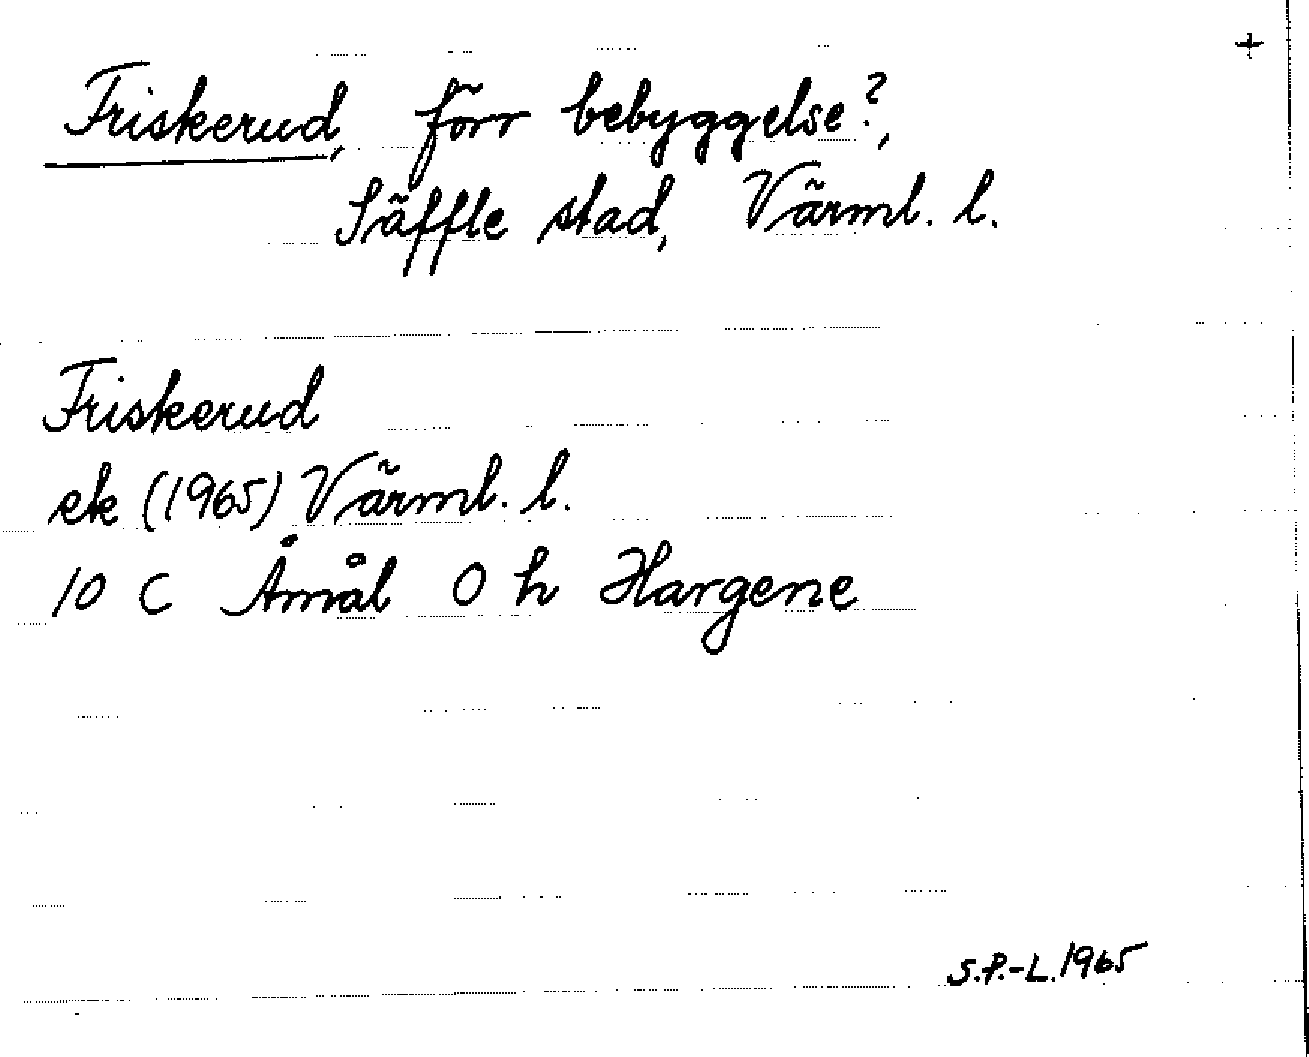 +
Friskerud, förr bebyggelse?,
Säffle stad, Värml. l.
Friskerud
ek (1965) Värml. l.
10 C Åmål O h Hargene
S.P.-L. 1965